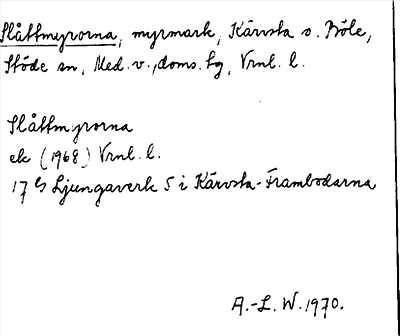 Slåttmyrorna, myrmark, Kärvsta o. Böle,
Stöde sn, Med. v., doms. hg, Vrnl. l.
Slåttmyrorna
ek (1968) Vrnl. l.
17 G Ljungaverk 5 i Kärvsta-Frambodarna
A.-L. W. 1970.